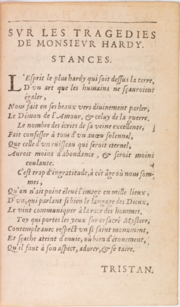 SVR LES TRAGEDIES
DE MONSIEVR HARDY.
STANCES.
L'Esprit le plus hardy qui soit dessus la terre,
D'vn art que les humains ne sçauroient
égaler,
Nous fait en ses beaux vers diuinement parler,
Le Démon de l'Amour, & celuy de la guerre.
Le nombre des écrits de sa veine excellente,
Fait confesser à tous d'vn aueu solennel,
Que celle d'vn ruisseau qui seroit eternel,
Auroit moins d'abondance, & seroit moins
coulante.
C'est trop d'ingratitude, à cét âge où nous som-
mes,
Qu'on n'ait point éleué l'image en mille lieux,
D'vn, qui parlant si bien le langage des Dieux,
Le vient communiquer à la race des hommes.
Toy qui portes les yeux sur ces sacré Mysteres
Contemple auec respect vn si saint monument,
Et sçache atteint d'enuie, où bien d'étonnement,
Qu'il faut à son aspect, adorer, & se taire.
TRISTAN.